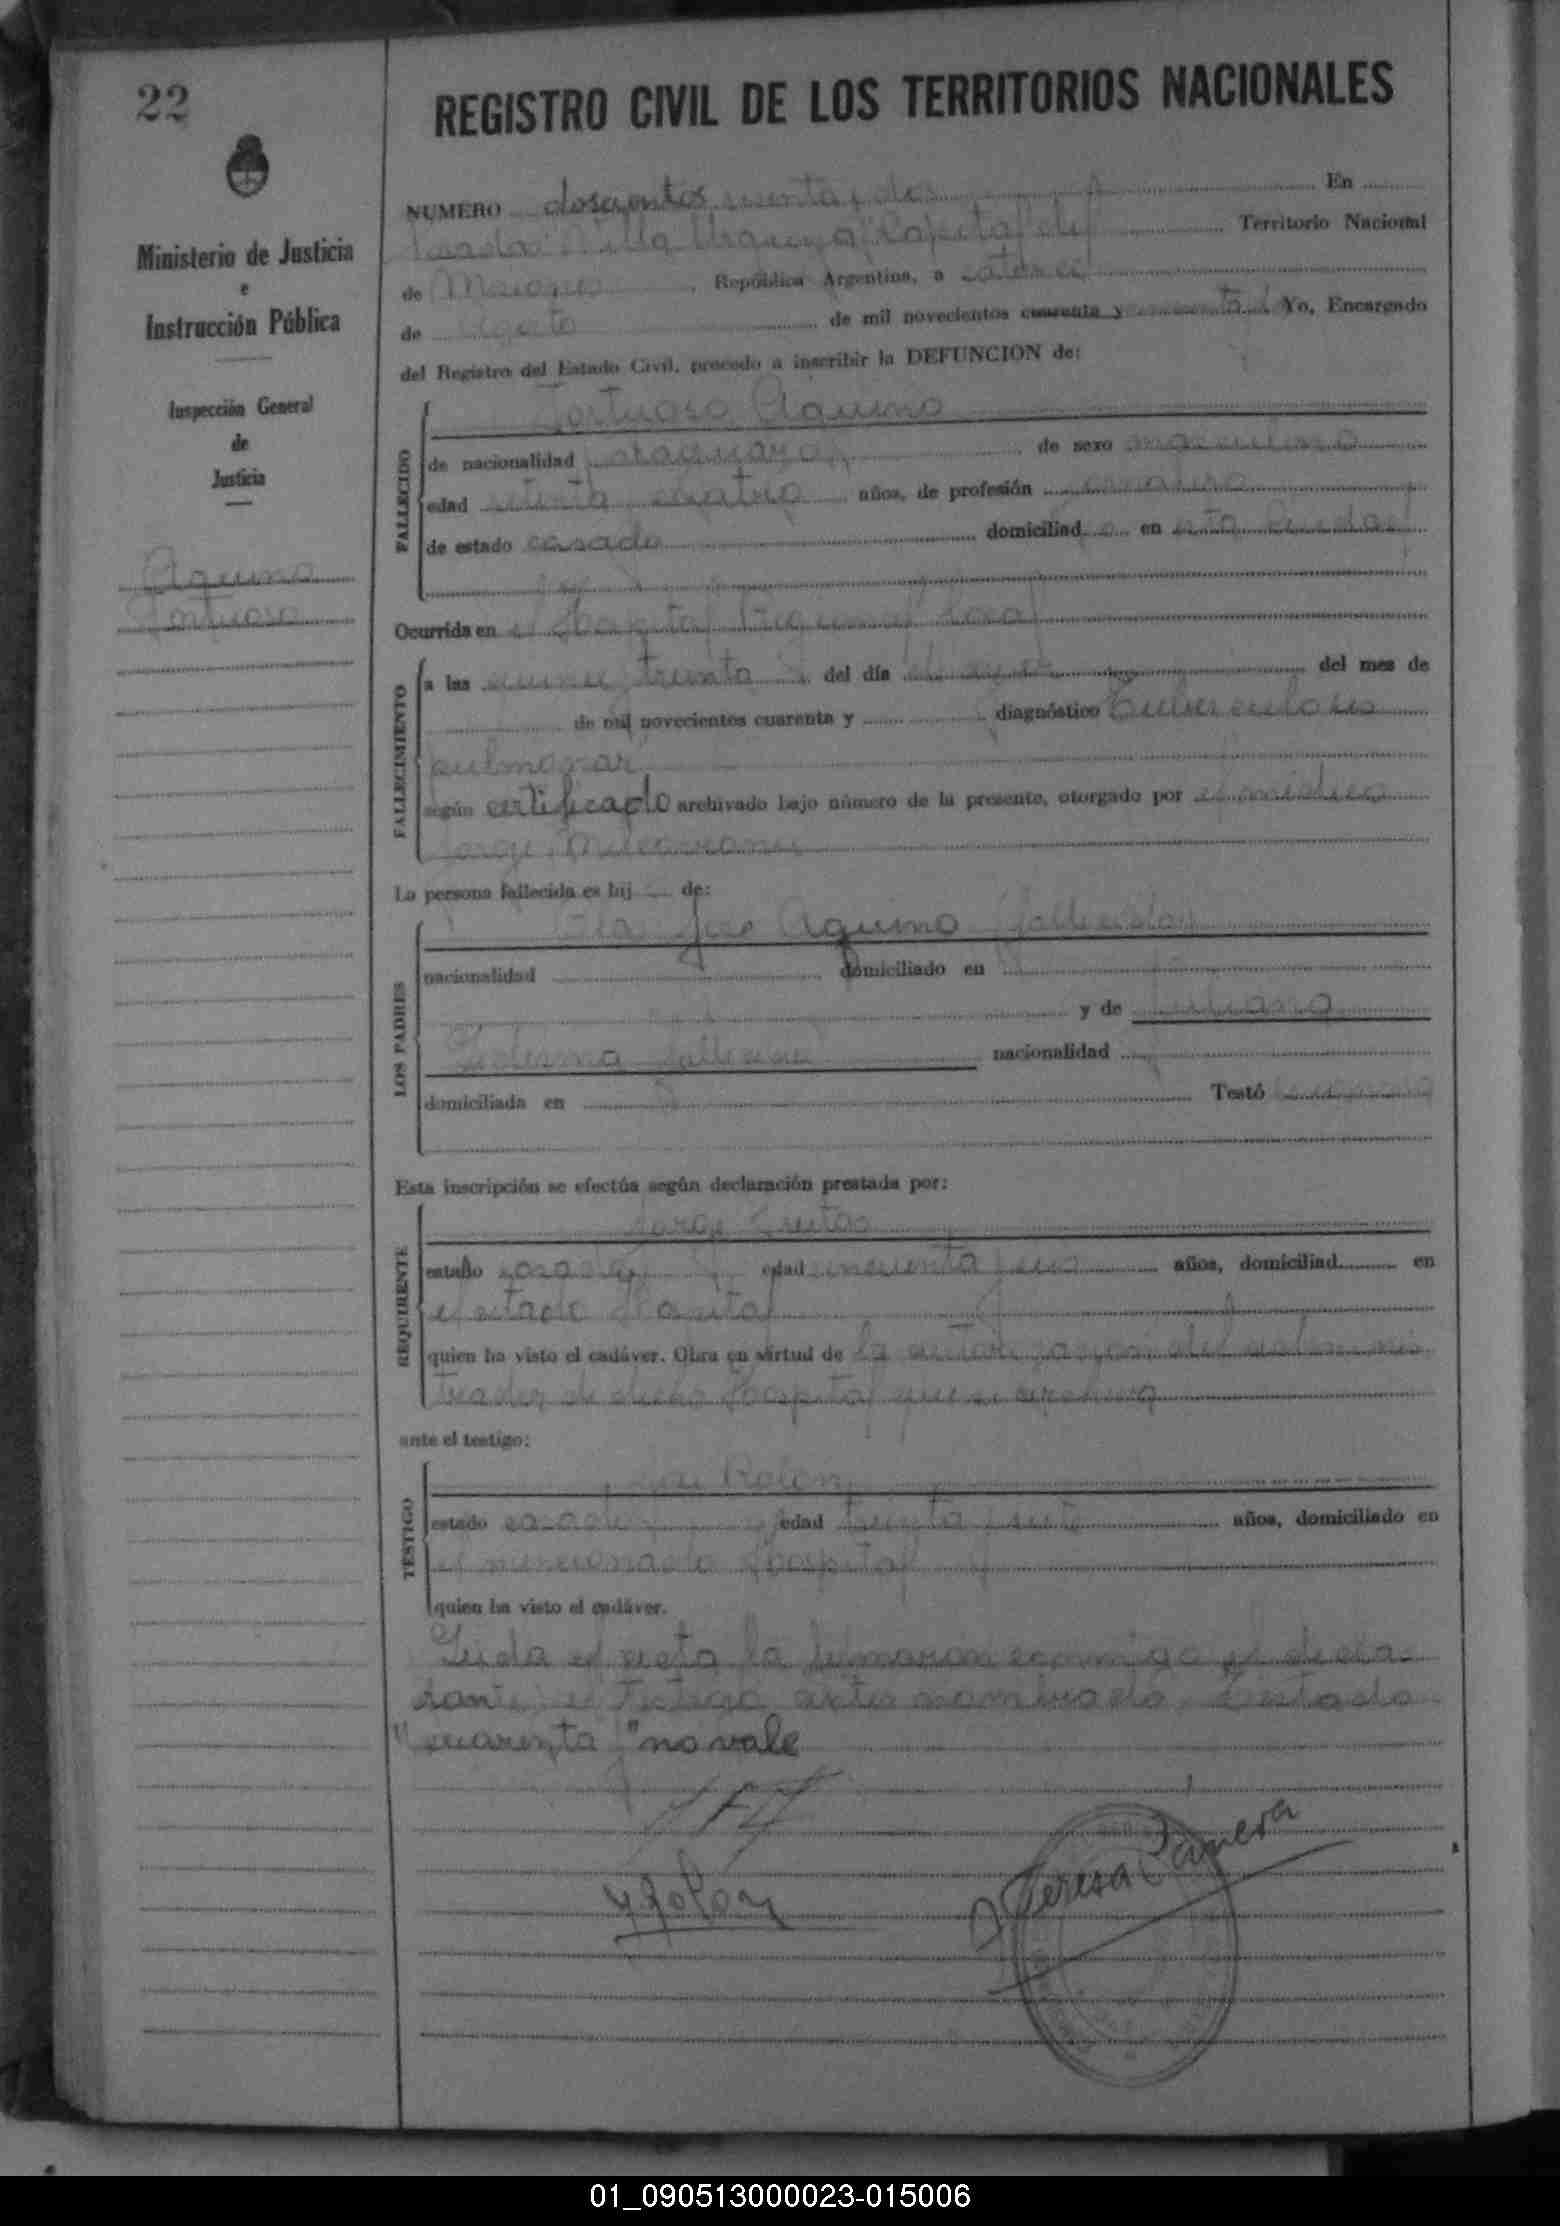 22
REGISTRO CIVIL DE LOS TERRITORIOS NACIONALES
Ministerio de Justicia
e
Instrucción Pública
Inspección General
de
Justicia
Aquino
Fortuoso
NUMERO doscientos y dos En
Posadas Villa Urquiza Capital del Territorio Nacional
de Misiones, República Argentina, a catorce
de Agosto de mil novecientos cuarenta y Yo, Encargado
del Registro del Estado Civil, procedo a inscribir la DEFUNCION de:
FALLECIDO
Fortuoso Aquino
de nacionalidad paraguaya de sexo masculino
edad setenta cuatro años, de profesión jornalero
de estado casado domiciliad o en esta ciudad
Ocurrida en el Hospital Regional Local
FALLECIMIENTO
a las treinta del día de ayer del mes de
de mil novecientos cuarenta y diagnóstico Tuberculosis
pulmonar
según certificado archivado bajo número de la presente, otorgado por el médico
Jorge
La persona fallecida es hij de:
LOS PADRES
Aquino fallecido
nacionalidad domiciliado en
y de Juliana
Ledesma fallecida nacionalidad
domiciliada en Testó
Esta inscripción se efectúa según declaración prestada por:
REQUIRENTE
Jorge
estado casado edad cincuenta años, domiciliad en
el citado Hospital
quien ha visto el cadáver. Obra en virtud de la autorización del adminis
trador de dicho Hospital que se archiva
ante el testigo:
TESTIGO
José Rolón
estado casado edad treinta y siete años, domiciliado en
el mencionado Hospital
quien ha visto el cadáver.
Leida el acta la firmaron conmigo el decla-
rante el testigo antes nombrado. Testado
"cuarenta y" no vale
J Rolon
Teresa
01_090513000023-015006